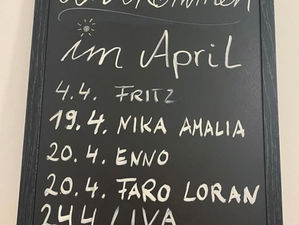 im April
4.4. FRITZ
19.4. NIKA AMALIA
20.4. ENNO
20.4. FARO LORAN
24.4